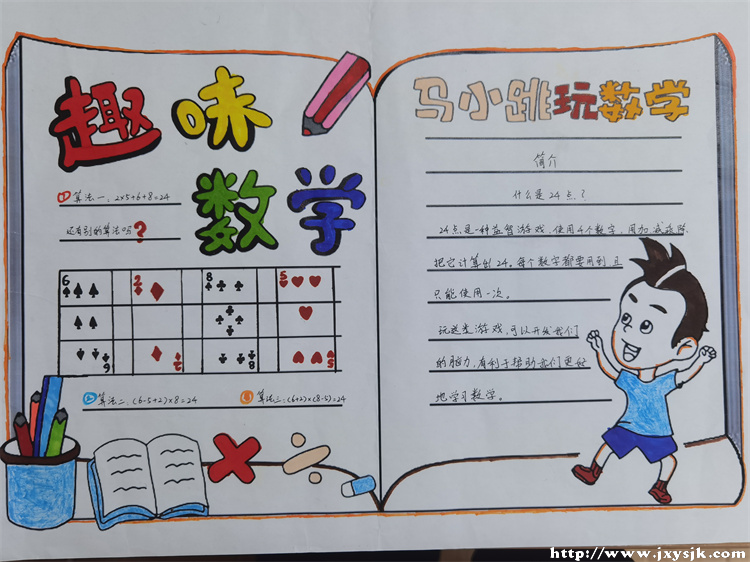 趣味
数学
① 算法一：2×5+6+8=24
还有别的算法吗？
6 2 8 5
6 2 8 5
② 算法二：(6-5+2)×8=24
③ 算法三：(6+2)×(8-5)=24
马小跳玩数学
简介
什么是24点？
24点是一种益智游戏，使用4个数字，用加减乘除
把它计算出24。每个数字都要用到且
只能使用一次。
玩这类游戏，可以开发我们
的脑力，有利于帮助我们更好
地学习数学。
http://www.jxysjk.com